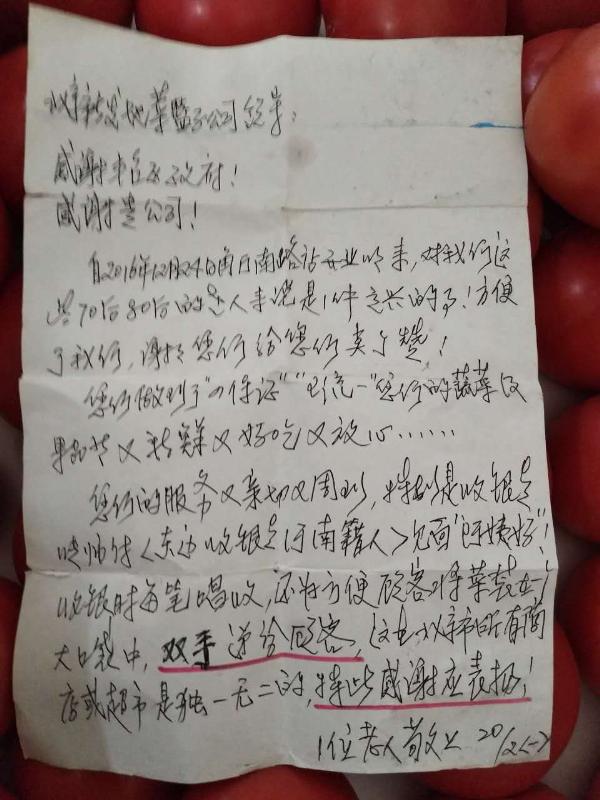 北京市新发地菜篮子公司经岸:
感谢丰台区政府!
感谢贵公司!
自2016年12月24日角门南路站开业以来,对我们这
些70后80后的老人来说是1件高兴的事!方便
了我们,谢谢您们给您们卖了赞!
您们做到了"四保证""五统一"您们的蔬菜及
果品等又新鲜又好吃又放心……
您们的服务又亲切又周到,特别是收银员
师付<东边收银员河南籍人>见面"阿姨好"!
收银时每笔唱收,还为方便顾客将菜装在一
大口袋中,双手递给顾客,这在北京市所有商
店或超市是独一无二的,特此感谢应表扬!
1位老人敬上 20/2<一>